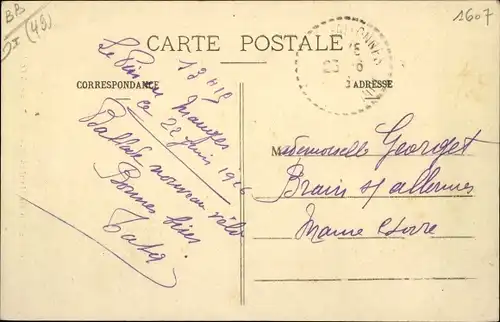 BB
(49)
1607
CARTE POSTALE
CORRESPONDANCE
ADRESSE
Le Pin en Mauges
ce 22 Juin 1926
Ballade nouveau vélo
Bonnes bises
Mademoiselle Georget
Brain s/ allonnes
Maine et Loire